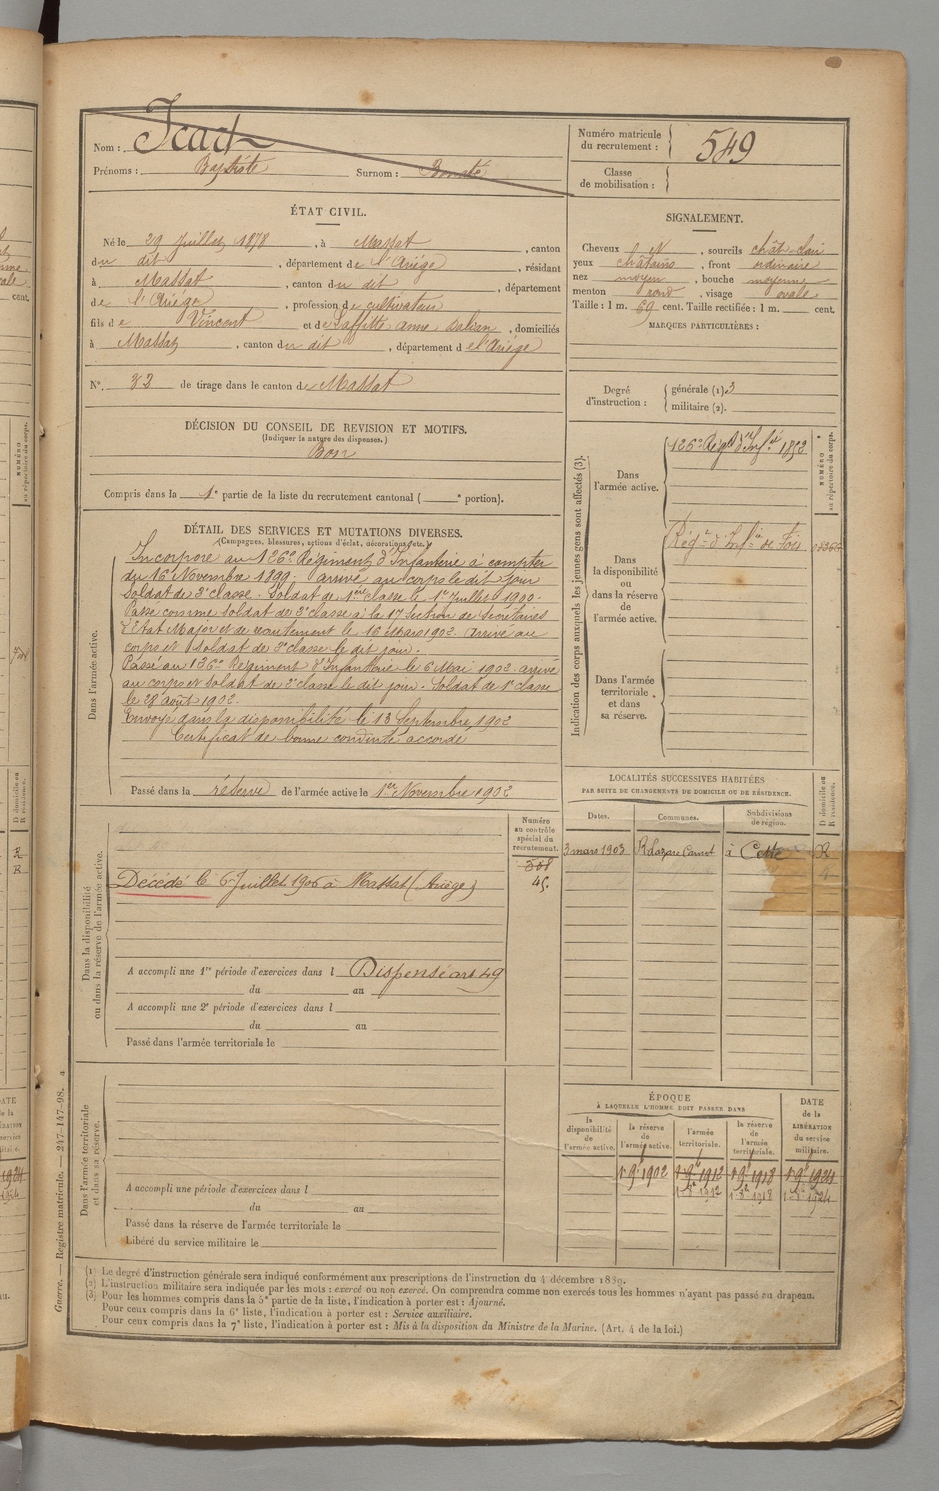 Nom : Icart
Prénoms : Baptiste Surnom :
Numéro matricule du recrutement : 549
Classe de mobilisation :
ÉTAT CIVIL.
Né le 29 Juillet 1878, à Massat, canton
du dit, département de l'Ariége, résidant
à Massat, canton du dit, département
de l'Ariége, profession de cultivateur
fils de Vincent et de Laffitte anne, domiciliés
à Massat, canton du dit, département de l'Ariége
N°. 32 de tirage dans le canton de Massat
DÉCISION DU CONSEIL DE REVISION ET MOTIFS.
(Indiquer la nature des dispenses.)
Bon
Compris dans la 1e partie de la liste du recrutement cantonal ( e portion).
DÉTAIL DES SERVICES ET MUTATIONS DIVERSES.
(Campagnes, blessures, actions d'éclat, décorations, etc.)
Dans l'armée active.
Incorporé au 126e Régiment d'Infanterie à compter
du 16 Novembre 1899. arrivé au corps le dit jour
Soldat de 2e classe. Soldat de 1ère classe le 1er Juillet 1900.
Passé comme Soldat de 2e classe à la 17 Section de Secrétaires
d'Etat Major et de recrutement le 16 Mars 1902. Arrivé au
corps et soldat de 2e classe le dit jour.
Passé au 126e Régiment d'Infanterie le 6 Mai 1902. arrivé
au corps et soldat de 2e classe le dit jour. Soldat de 1e classe
le 28 août 1902.
Envoyé dans la disponibilité le 13 Septembre 1902
Certificat de bonne conduite accordé
Passé dans la réserve de l'armée active le 1er Novembre 1902
Dans la disponibilité
ou dans la réserve de l'armée active.
Numéro
au contrôle
spécial du
recrutement.
508
45.
Décédé le 6 Juillet 1906 à Massat (Ariège)
A accompli une 1re période d'exercices dans l Dispensé art 49
du au
A accompli une 2e période d'exercices dans l
du au
Passé dans l'armée territoriale le
Dans l'armée territoriale
et dans sa réserve.
A accompli une période d'exercices dans l
du au
Passé dans la réserve de l'armée territoriale le
Libéré du service militaire le
SIGNALEMENT.
Cheveux N, sourcils chât-clair
yeux châtains, front ordinaire
nez moyen, bouche moyenne
menton rond, visage ovale
Taille : 1 m. 69 cent. Taille rectifiée : 1 m. cent.
MARQUES PARTICULIÈRES :
Degré
d'instruction :
générale (1) 3
militaire (2).
Indication des corps auxquels les jeunes gens sont affectés (3).
NUMÉRO
au répertoire du corps.
Dans
l'armée active.
126e Régt d'Infie
Dans
la disponibilité
ou
dans la réserve
de
l'armée active.
Régt d'Infie de Foix
Dans l'armée
territoriale
et dans
sa réserve.
LOCALITÉS SUCCESSIVES HABITÉES
PAR SUITE DE CHANGEMENTS DE DOMICILE OU DE RÉSIDENCE.
Dates. Communes. Subdivisions de région. D domicile ou R résidence.
3 mars 1903 R Lazare Carnot à Cette R
ÉPOQUE
À LAQUELLE L'HOMME DOIT PASSER DANS
la disponibilité de l'armée active. la réserve de l'armée active. l'armée territoriale. la réserve de l'armée territoriale.
DATE de la LIBÉRATION du service militaire.
1er 9bre 1902 1er 9bre 1912 1er 9bre 1918 1er 9bre 1924
Guerre. — Registre matricule. — 247-147-98.
(1) Le degré d'instruction générale sera indiqué conformément aux prescriptions de l'instruction du 4 décembre 1889.
(2) L'instruction militaire sera indiquée par les mots : exercé ou non exercé. On comprendra comme non exercés tous les hommes n'ayant pas passé au drapeau.
(3) Pour les hommes compris dans la 5e partie de la liste, l'indication à porter est : Ajourné.
Pour ceux compris dans la 6e liste, l'indication à porter est : Service auxiliaire.
Pour ceux compris dans la 7e liste, l'indication à porter est : Mis à la disposition du Ministre de la Marine. (Art. 4 de la loi.)